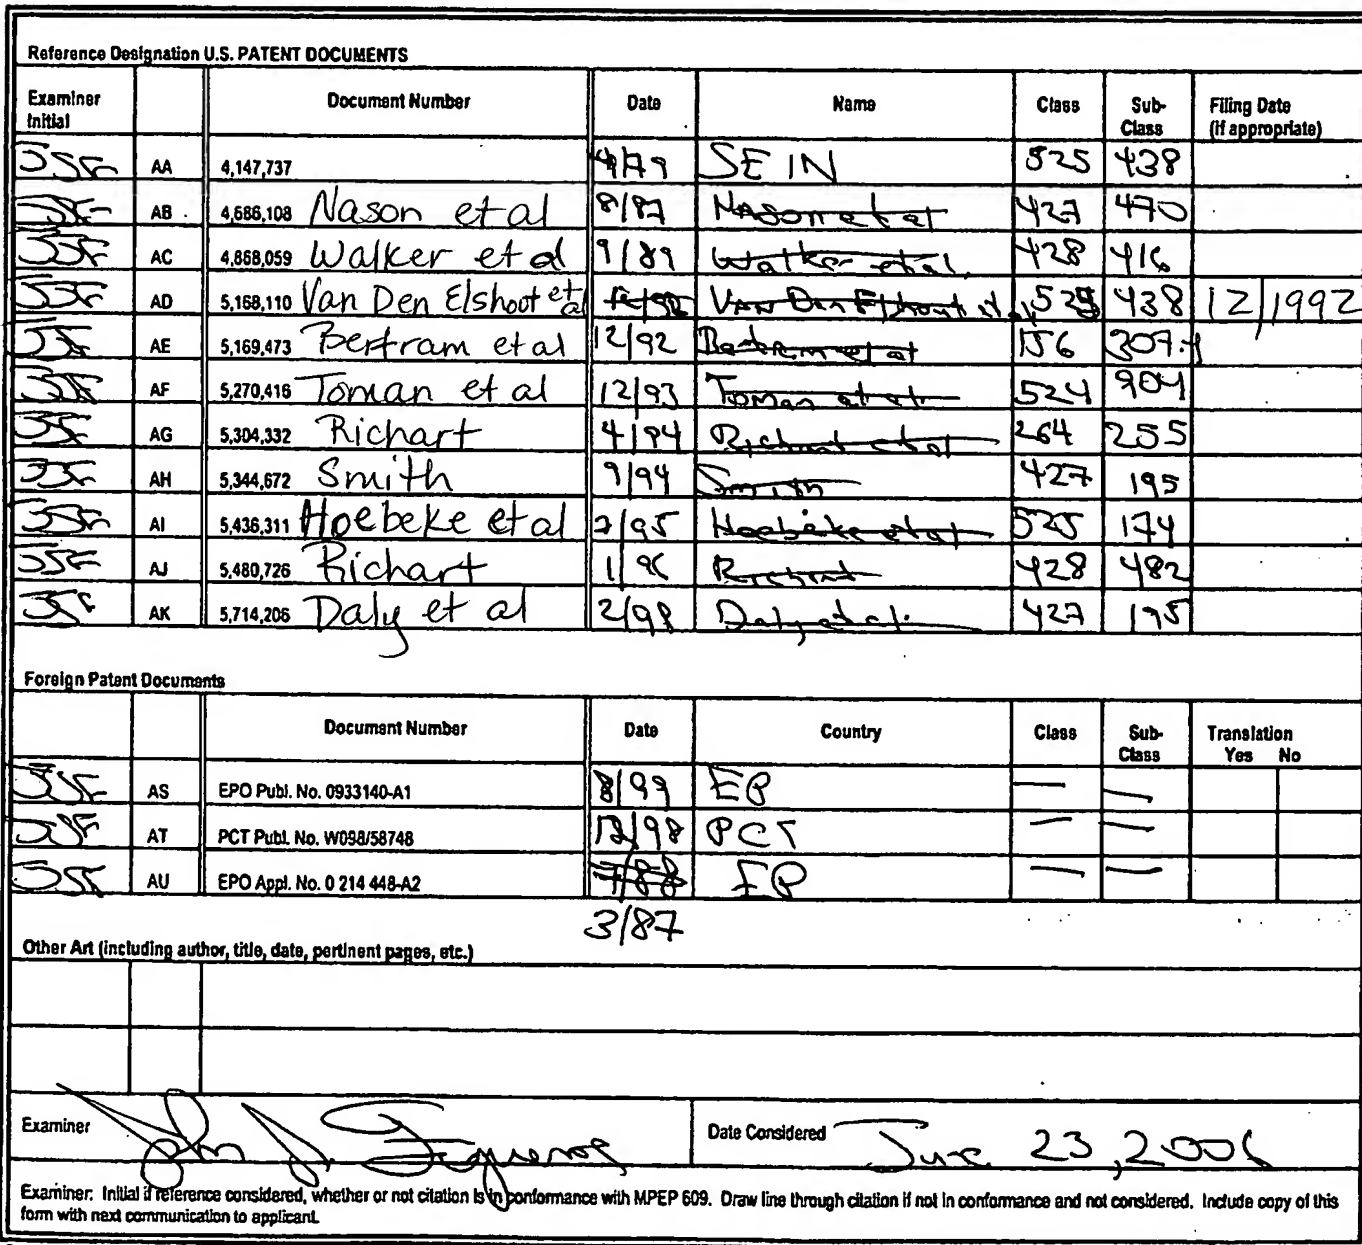 Reference Designation U.S. PATENT DOCUMENTS
Examiner Initial Document Number Date Name Class Sub-Class Filing Date (if appropriate)
JSF AA 4,147,737 4/79 SEIN 525 438
JSF AB 4,686,108 Nason et al 8/87 Nason et al 427 470
JSF AC 4,868,059 Walker et al 9/89 Walker et al. 428 416
JSF AD 5,168,110 Van Den Elshoot et al 12/92 Van Den Elshout et al 525 438 12/1992
JSF AE 5,169,473 Bertram et al 12/92 Bertram et al 156 307.1
JSF AF 5,270,416 Toman et al 12/93 Toman et al. 524 904
JSF AG 5,304,332 Richart 4/94 Richart et al 264 255
JSF AH 5,344,672 Smith 9/94 Smith 427 195
JSF AI 5,436,311 Hoebeke et al 7/95 Hoebeke et al 525 174
JSF AJ 5,480,726 Richart 1/96 Richart 428 482
JSF AK 5,714,206 Daly et al 2/98 Daly et al. 427 195
Foreign Patent Documents
Document Number Date Country Class Sub-Class Translation Yes No
JSF AS EPO Publ. No. 0933140-A1 8/99 EP — —
JSF AT PCT Publ. No. WO98/58748 12/98 PCT — —
JSF AU EPO Appl. No. 0 214 448-A2 7/88 EP — —
3/87
Other Art (including author, title, date, pertinent pages, etc.)
Examiner John S. Figueroa Date Considered June 23, 2006
Examiner: Initial if reference considered, whether or not citation is in conformance with MPEP 609. Draw line through citation if not in conformance and not considered. Include copy of this
form with next communication to applicant.